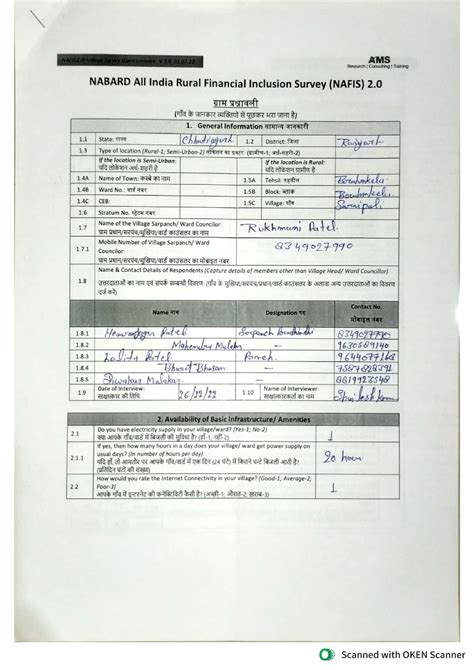 NAFIS 2.0 Village Survey Questionnaire_V 1.4_01.07.22
AMS
Research | Consulting | Training
NABARD All India Rural Financial Inclusion Survey (NAFIS) 2.0
ग्राम प्रश्नावली
(गाँव के जानकार व्यक्तियों से पूछकर भरा जाना है)
1. General Information सामान्य जानकारी
1.1 State: राज्य Chhattisgarh 1.2 District: जिला Raigarh
1.3 Type of location (Rural-1; Semi-Urban-2) लोकेशन का प्रकार: (ग्रामीण-1; अर्ध-शहरी-2)
If the location is Semi-Urban: If the location is Rural:
यदि लोकेशन अर्ध-शहरी है यदि लोकेशन ग्रामीण है
1.4A Name of Town: कस्बे का नाम 1.5A Tehsil: तहसील
1.4B Ward No.: वार्ड नंबर 1.5B Block: ब्लाक
1.4C CEB: 1.5C Village: गाँव Saraipali
1.6 Stratum No. स्ट्रेटम नंबर
1.7 Name of the Village Sarpanch/ Ward Councilor: Rukhmuni Patel
ग्राम प्रधान/सरपंच/मुखिया/वार्ड काउंसलर का नाम
1.7.1 Mobile Number of Village Sarpanch/ Ward Councilor: 8349027990
ग्राम प्रधान/सरपंच/मुखिया/वार्ड काउंसलर का मोबाइल नंबर
1.8 Name & Contact Details of Respondents (Capture details of members other than Village Head/ Ward Councillor)
उत्तरदाताओं का नाम एवं संपर्क सम्बन्धी विवरण (गाँव के मुखिया/सरपंच/प्रधान/वार्ड काउंसलर के अलावा अन्य उत्तरदाताओं का विवरण दर्ज करें)
Name नाम Designation पद Contact No. मोबाइल नंबर
1.8.1 Patel Sarpanch
1.8.2 Mahendra 9630589140
1.8.3 Lalita Patel Panch. 9644077168
1.8.4 Bharat Bhusan
1.8.5 Diwakar Malakar 8819923548
1.9 Date of Interview: 26/12/22 1.10 Name of Interviewer:
साक्षात्कार की तिथि साक्षात्कारकर्ता का नाम
2. Availability of Basic Infrastructure/ Amenities
2.1 Do you have electricity supply in your village/ward? (Yes-1; No-2) 1
क्या आपके गाँव/वार्ड में बिजली की सुविधा है? (हाँ-1; नहीं-2)
2.1.1 If yes, then how many hours in a day does your village/ ward get power supply on usual days? (In number of hours per day) 20 hour
यदि हाँ, तो आमतौर पर आपके गाँव/वार्ड में एक दिन (24 घंटे) में कितने घन्टे बिजली आती है? (प्रतिदिन घंटों की संख्या)
2.2 How would you rate the Internet Connectivity in your village? (Good-1; Average-2; Poor-3) 1
आपके गाँव में इन्टरनेट की कनेक्टिविटी कैसी है? (अच्छी-1; औसत-2; ख़राब-3)
Scanned with OKEN Scanner